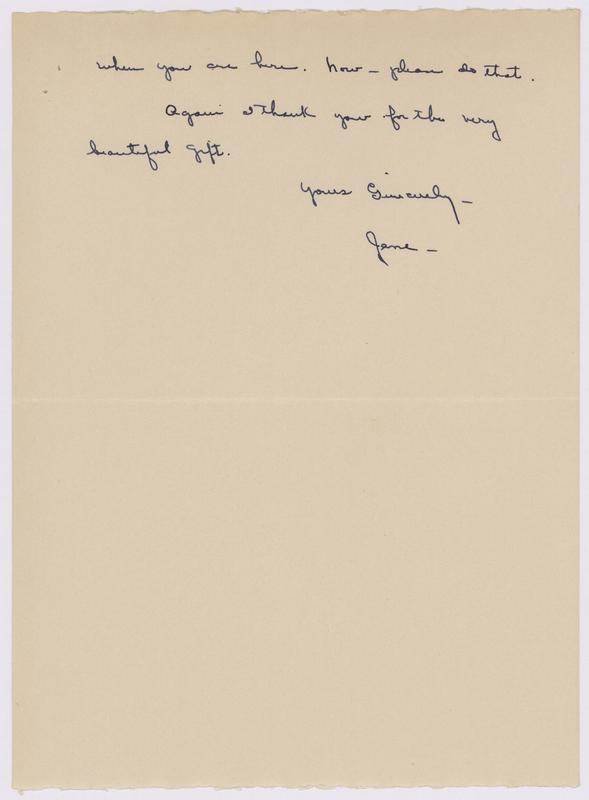 when you are here. Now - please do that.
Again I thank you for the very
beautiful gift.
Yours Sincerely -
Jene -